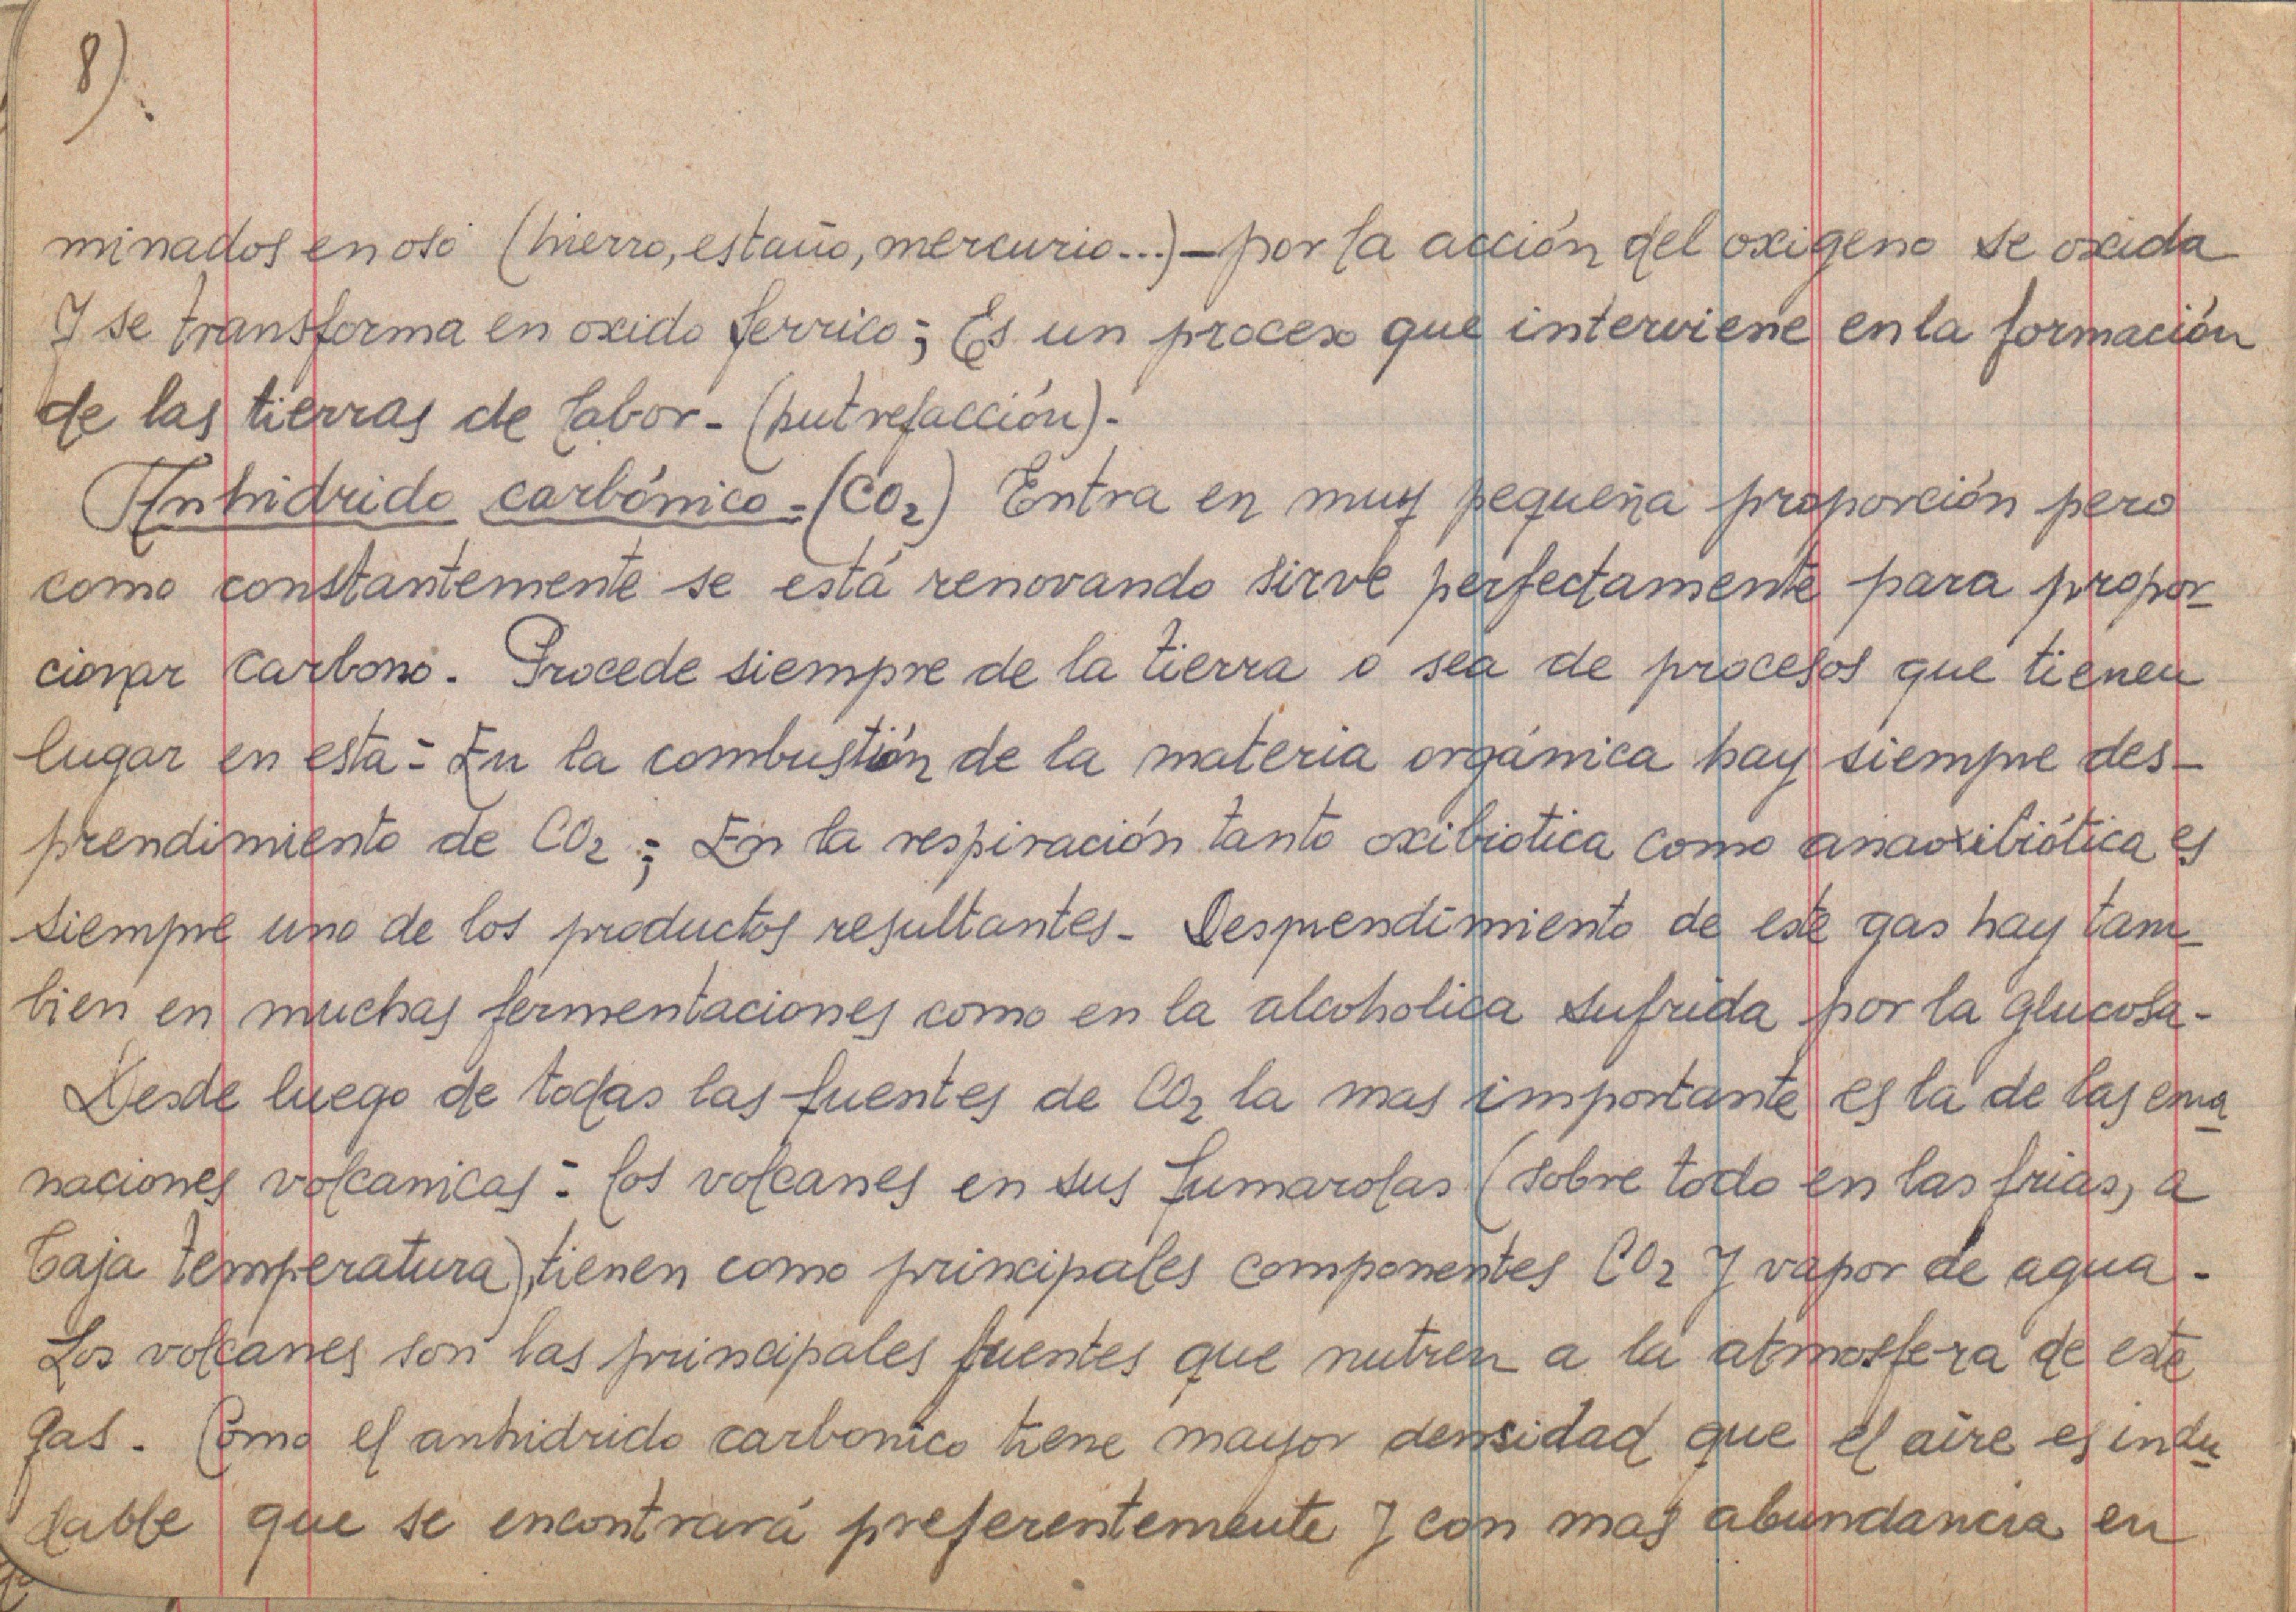 8).
minados en oso (hierro, estaño, mercurio...) - por la acción del oxigeno se oxida
y se transforma en oxido ferrico; Es un proceso que interviene en la formación
de las tierras de labor - (putrefacción) -
Anhidrido carbónico - (CO₂) Entra en muy pequeña proporción pero
como constantemente se está renovando sirve perfectamente para propor-
cionar carbono. Procede siempre de la tierra o sea de procesos que tienen
lugar en esta - En la combustión de la materia orgánica hay siempre des-
prendimiento de CO₂; En la respiración tanto oxibiotica como anaoxibiótica es
siempre uno de los productos resultantes - Desprendimiento de este gas hay tam-
bien en muchas fermentaciones como en la alcoholica sufrida por la glucosa -
Desde luego de todas las fuentes de CO₂ la mas importante es la de las ema
naciones volcanicas - los volcanes en sus fumarolas (sobre todo en las frias, a
baja temperatura), tienen como principales componentes CO₂ y vapor de agua -
Los volcanes son las principales fuentes que nutren a la atmosfera de este
gas - Como el anhidrido carbonico tiene mayor densidad que el aire es indu
dable que se encontrará preferentemente y con mas abundancia en